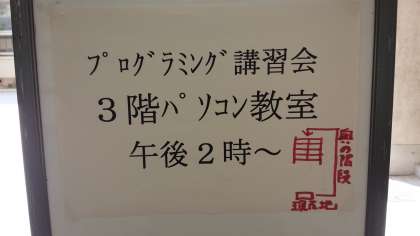 ﾌﾟﾛｸﾞﾗﾐﾝｸﾞ講習会
３階ﾊﾟｿｺﾝ教室
午後２時～
奥の階段
現在地